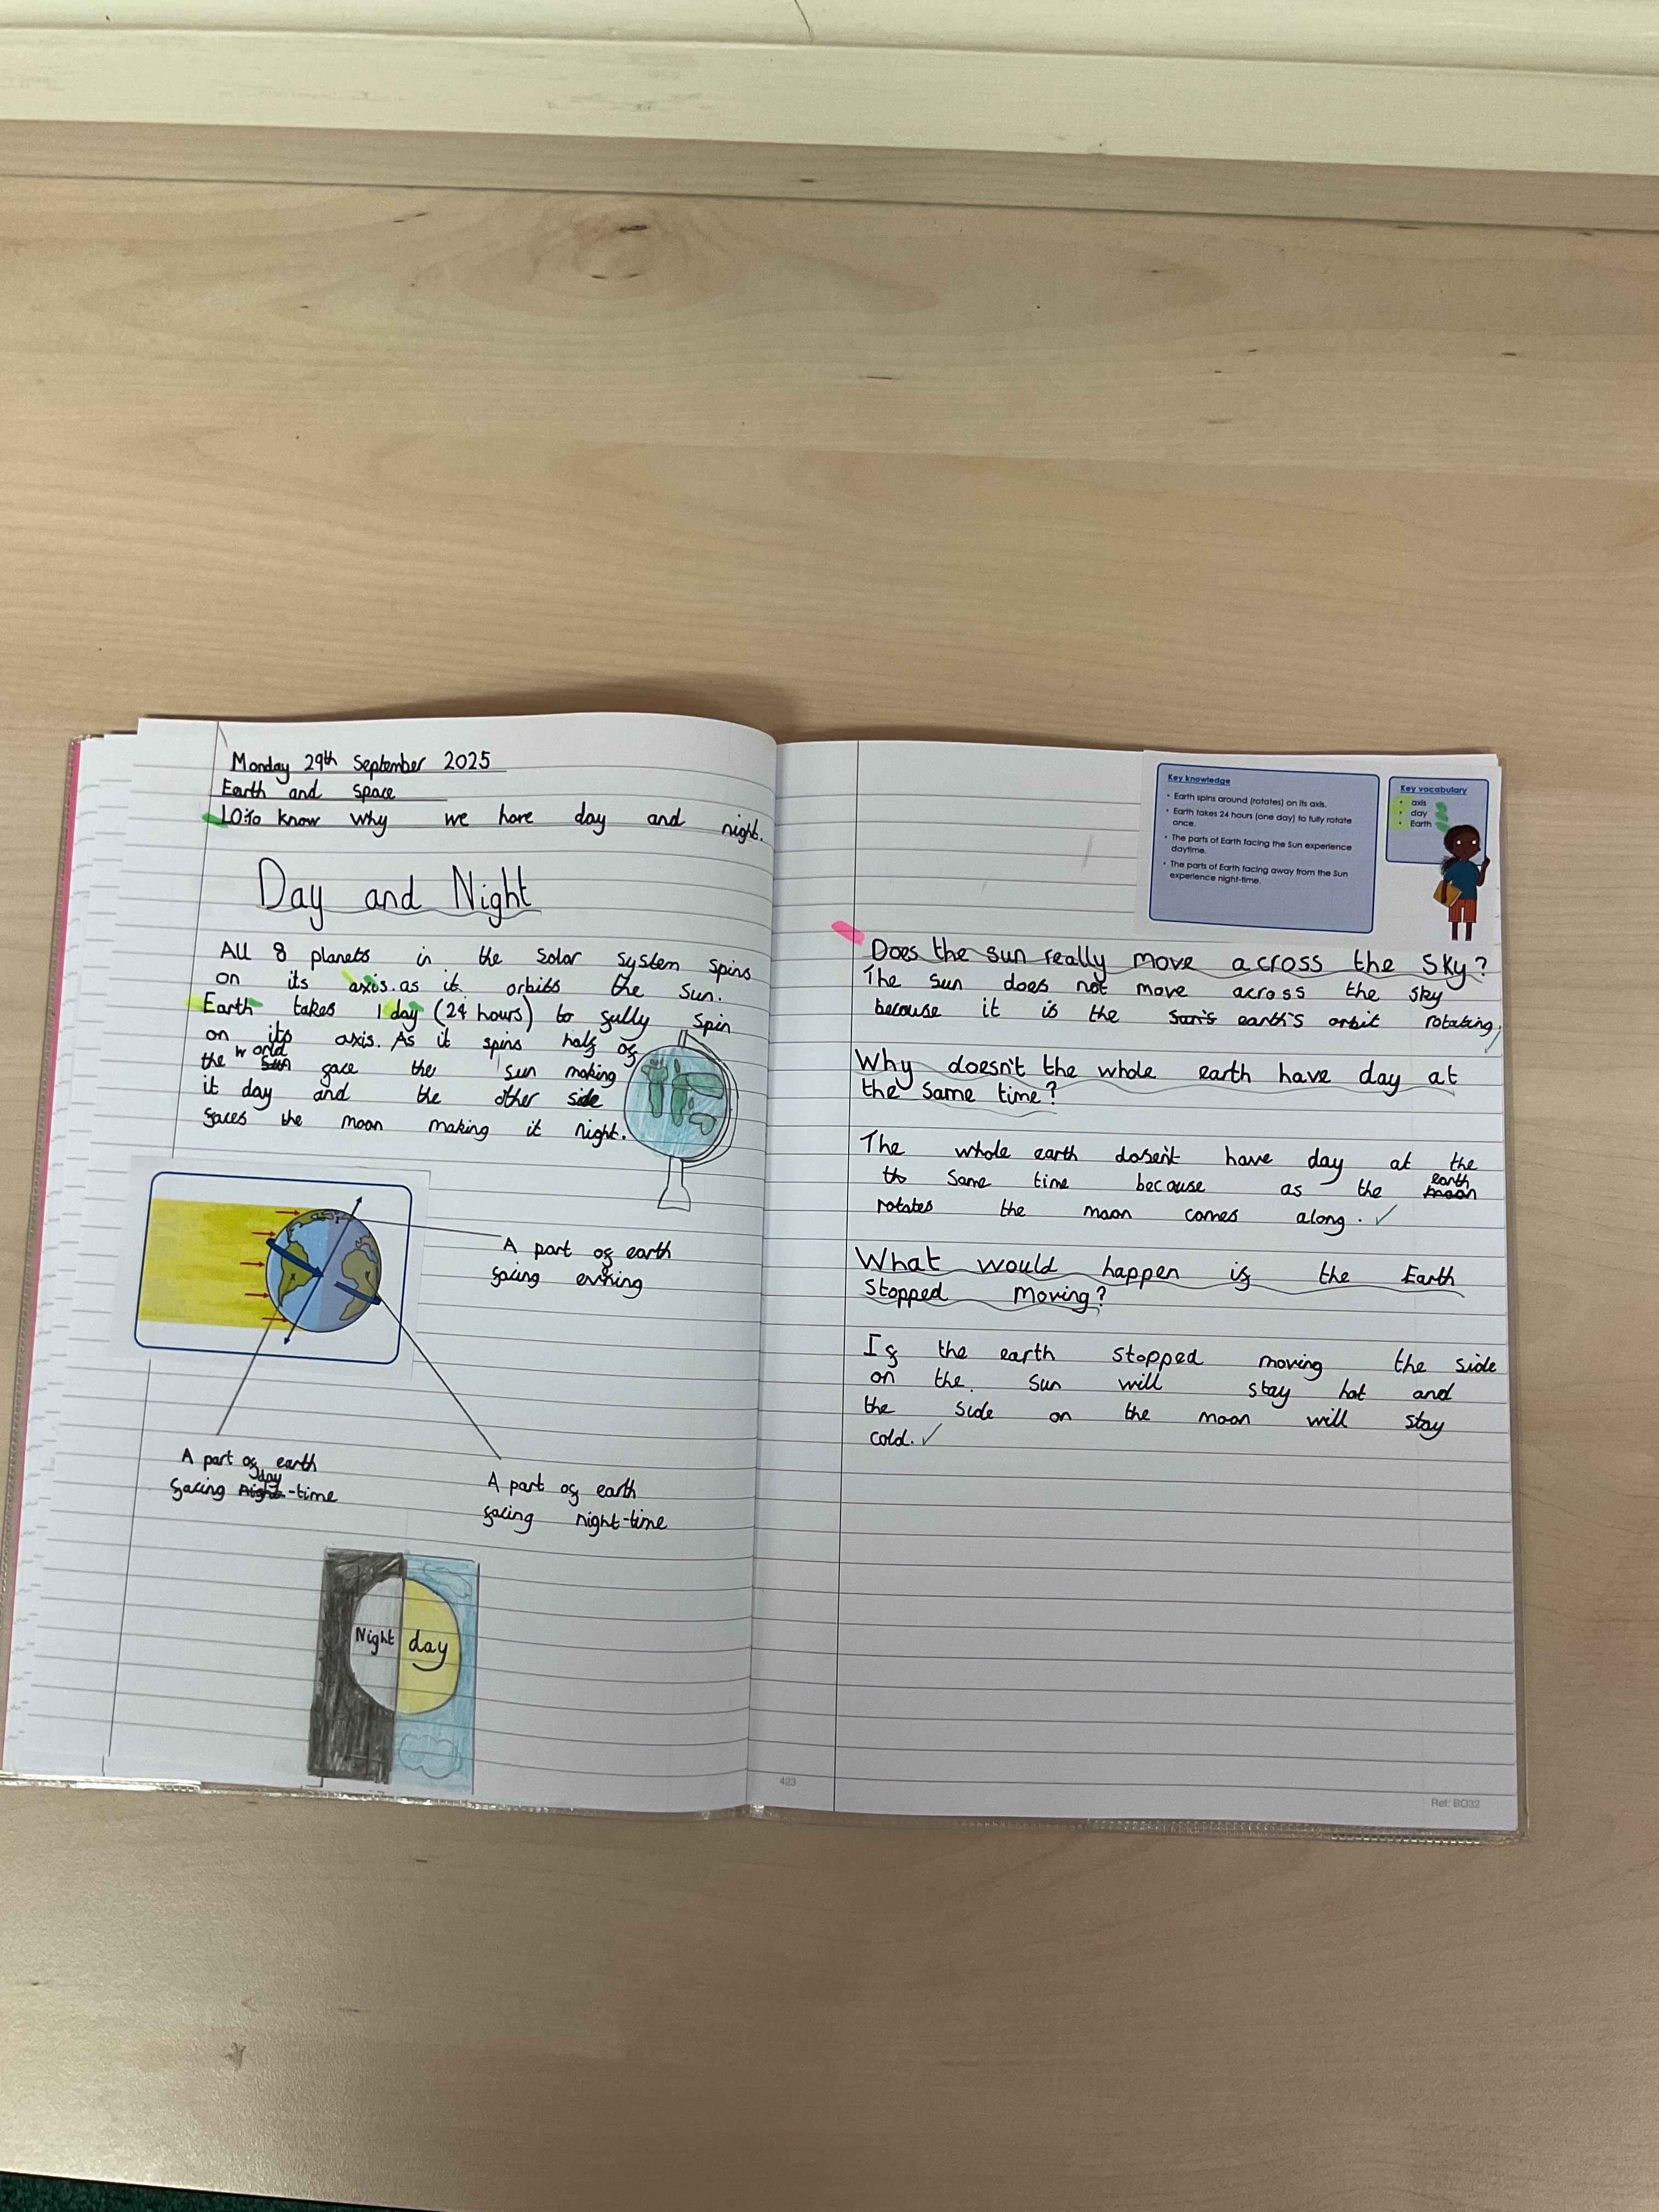 Monday 29th September 2025
Earth and space
LO:To know why we have day and night.
Day and Night
All 8 planets in the solar system spins
on its axis.as it orbits the sun.
Earth takes 1 day (24 hours) to fully spin
on its axis. As it spins half of
the world face the sun making
it day and the other side
faces the moon making it night.
A part of earth
facing evning
A part of earth
facing day-time
A part of earth
facing night-time
Night day
423
Key knowledge
• Earth spins around (rotates) on its axis.
• Earth takes 24 hours (one day) to fully rotate
once.
• The parts of Earth facing the Sun experience
daytime.
• The parts of Earth facing away from the Sun
experience night-time.
Key vocabulary
• axis
• day
• Earth
Does the sun really move across the sky?
The sun does not move across the sky
because it is the sun's earth's orbit rotating.
Why doesn't the whole earth have day at
the same time?
The whole earth dosen't have day at the
th same time because as the moon earth
rotates the moon comes along.
What would happen if the Earth
stopped moving?
If the earth stopped moving the side
on the sun will stay hot and
the side on the moon will stay
cold.
Ref: BO32